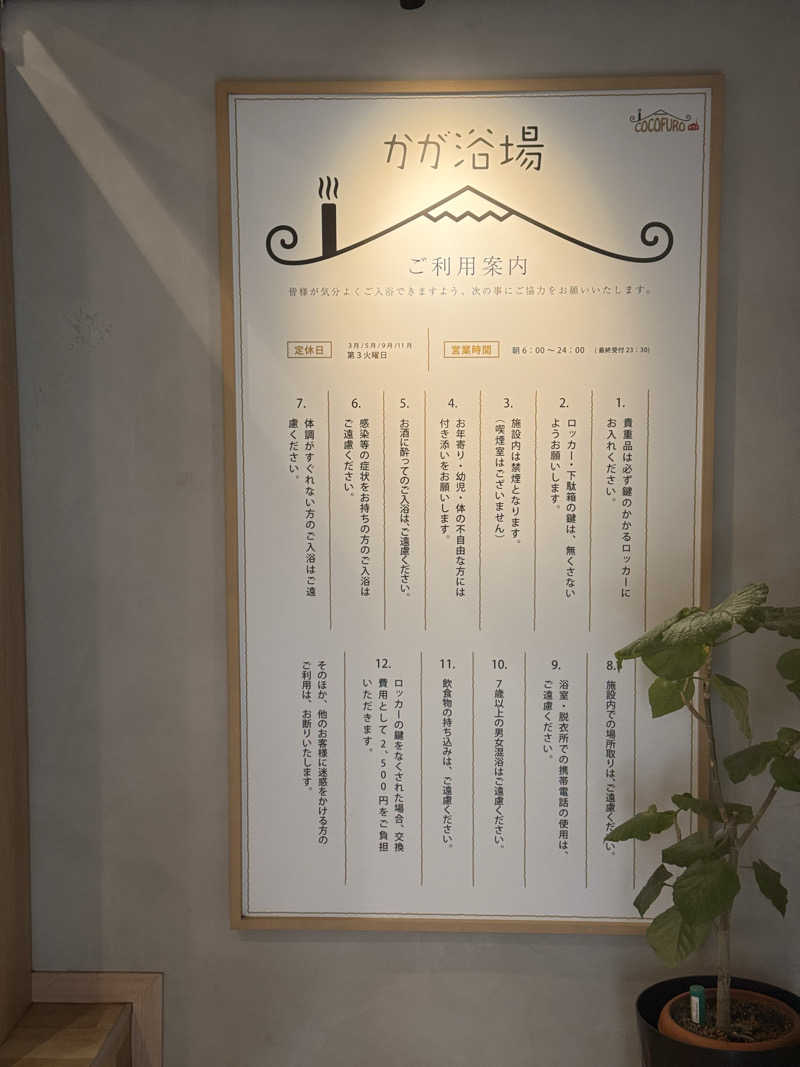 COCOFURO
かが浴場
ご利用案内
皆様が気分よくご入浴できますよう、次の事にご協力をお願いいたします。
定休日
3月/5月/9月/11月
第3火曜日
営業時間
朝6：00～24：00
(最終受付23：30)
1.
貴重品は必ず鍵のかかるロッカーに
お入れください。
2.
ロッカー・下駄箱の鍵は、無くさない
ようお願いします。
3.
施設内は禁煙となります。
（喫煙室はございません）
4.
お年寄り・幼児・体の不自由な方には
付き添いをお願いします。
5.
お酒に酔ってのご入浴は、ご遠慮ください。
6.
感染等の症状をお持ちの方のご入浴は
ご遠慮ください。
7.
体調がすぐれない方のご入浴はご遠
慮ください。
8.
施設内での場所取りは、ご遠慮ください。
9.
浴室・脱衣所での携帯電話の使用は、
ご遠慮ください。
10.
7歳以上の男女混浴はご遠慮ください。
11.
飲食物の持ち込みは、ご遠慮ください。
12.
ロッカーの鍵をなくされた場合、交換
費用として2、500円をご負担
いただきます。
そのほか、他のお客様に迷惑をかける方の
ご利用は、お断りいたします。